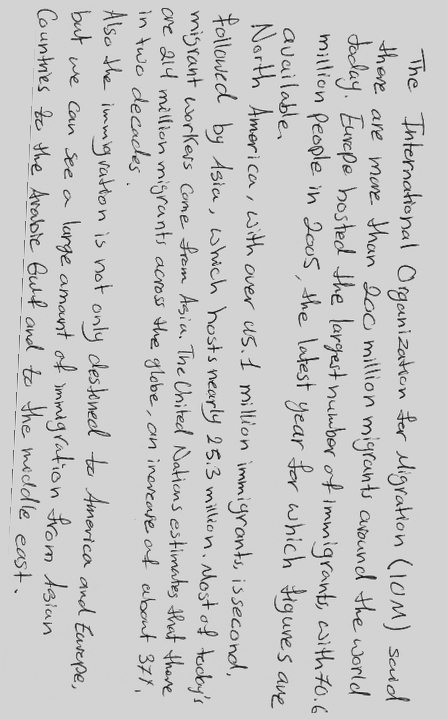 The International Organization for Migration (IOM) said
there are more than 200 million migrants around the world
today. Europe hosted the largest number of immigrants, with 70.6
million people in 2005, the latest year for which figures are
available.
North America, with over 45.1 million immigrants, is second,
followed by Asia, which hosts nearly 25.3 million. Most of today's
migrant workers come from Asia. The United Nations estimates that there
are 214 million migrants across the globe, an increase of about 37%
in two decades.
Also the immigration is not only destined to America and Europe,
but we can see a large amount of immigration from Asian
Countries to the Arabic Gulf and to the middle east.